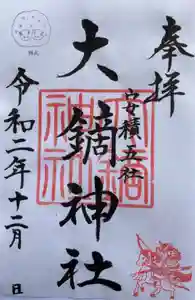 奉拝
安積五社
大鏑神社
令和二年十二月 日